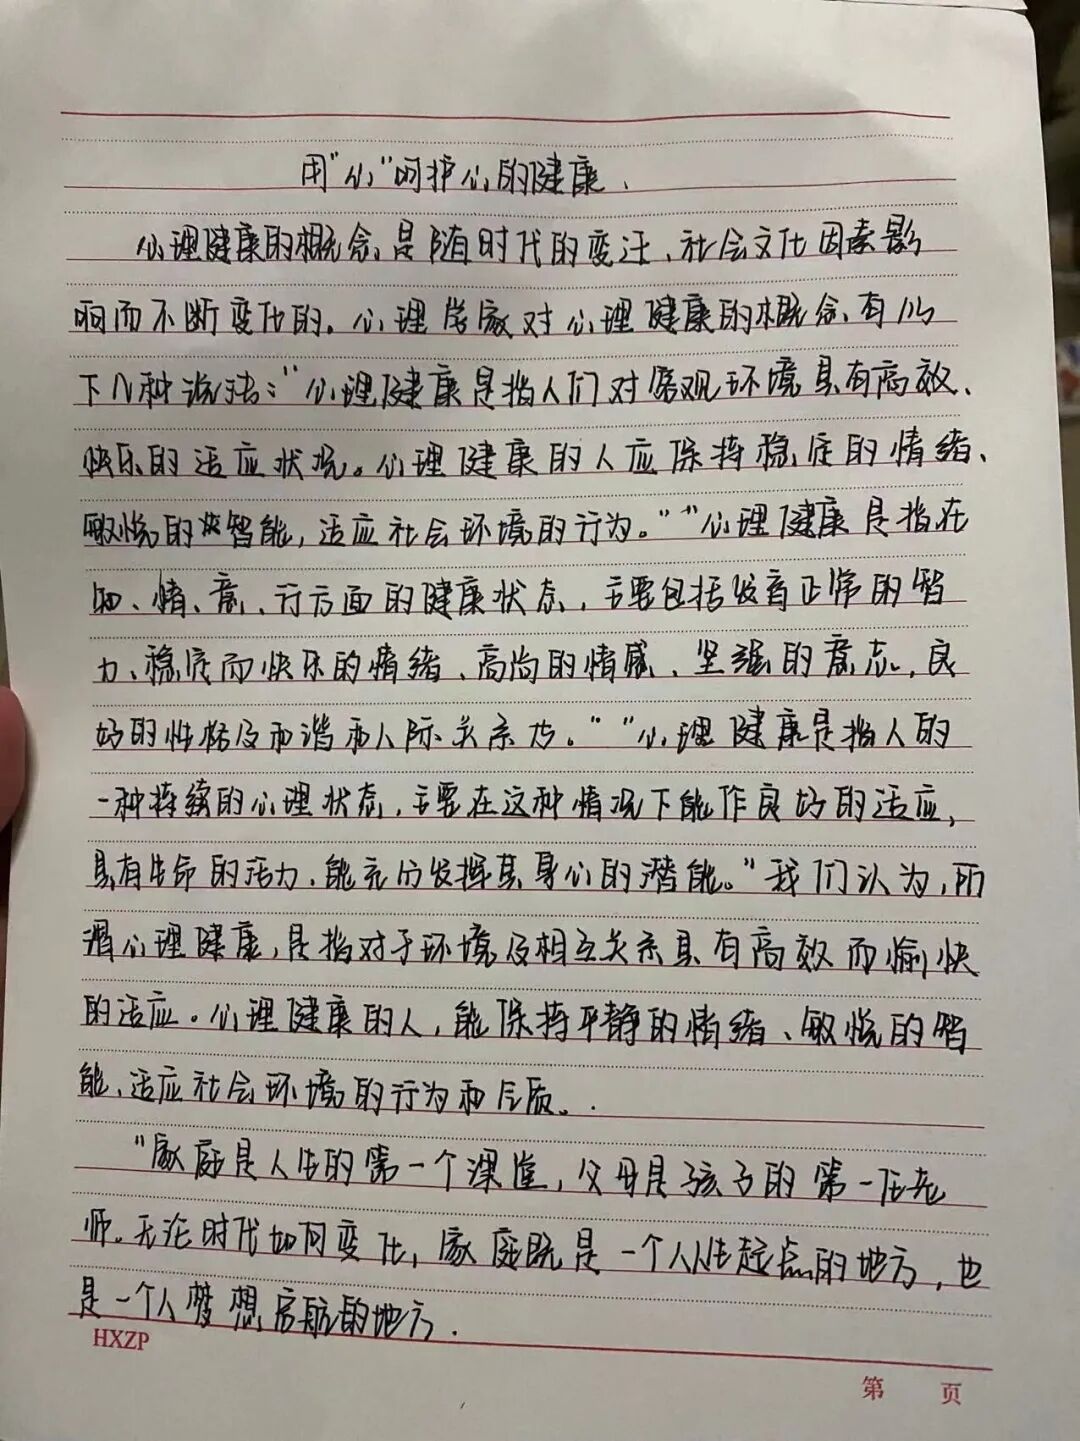 用"心"呵护心的健康.
心理健康的概念,是随时代的变迁、社会文化因素影
响而不断变化的。心理学家对心理健康的概念,有以
下几种说法:"心理健康是指人们对客观环境具有高效、
快乐的适应状况。心理健康的人应保持稳定的情绪、
敏悦的智能,适应社会环境的行为。""心理健康是指在
知、情、意、行方面的健康状态,主要包括发育正常的智
力、稳定而快乐的情绪、高尚的情感、坚强的意志,良
好的性格及和谐和人际关系
。""心理健康是指人的
一种持续的心理状态,主要在这种情况下能作良好的适应,
具有生命的活力,能充分发挥其身心的潜能。"我们认为,所
谓心理健康,是指对于环境及相互关系具有高效而愉快
的适应。心理健康的人,能保持平静的情绪、敏悦的智
能、适应社会环境的行为和气质。.
"家庭是人生的第一个课堂,父母是孩子的第一任老
师。无论时代如何变化,家庭既是一个人人生起点的地方,也
是一个人梦想启航的地方.
HXZP
第 页